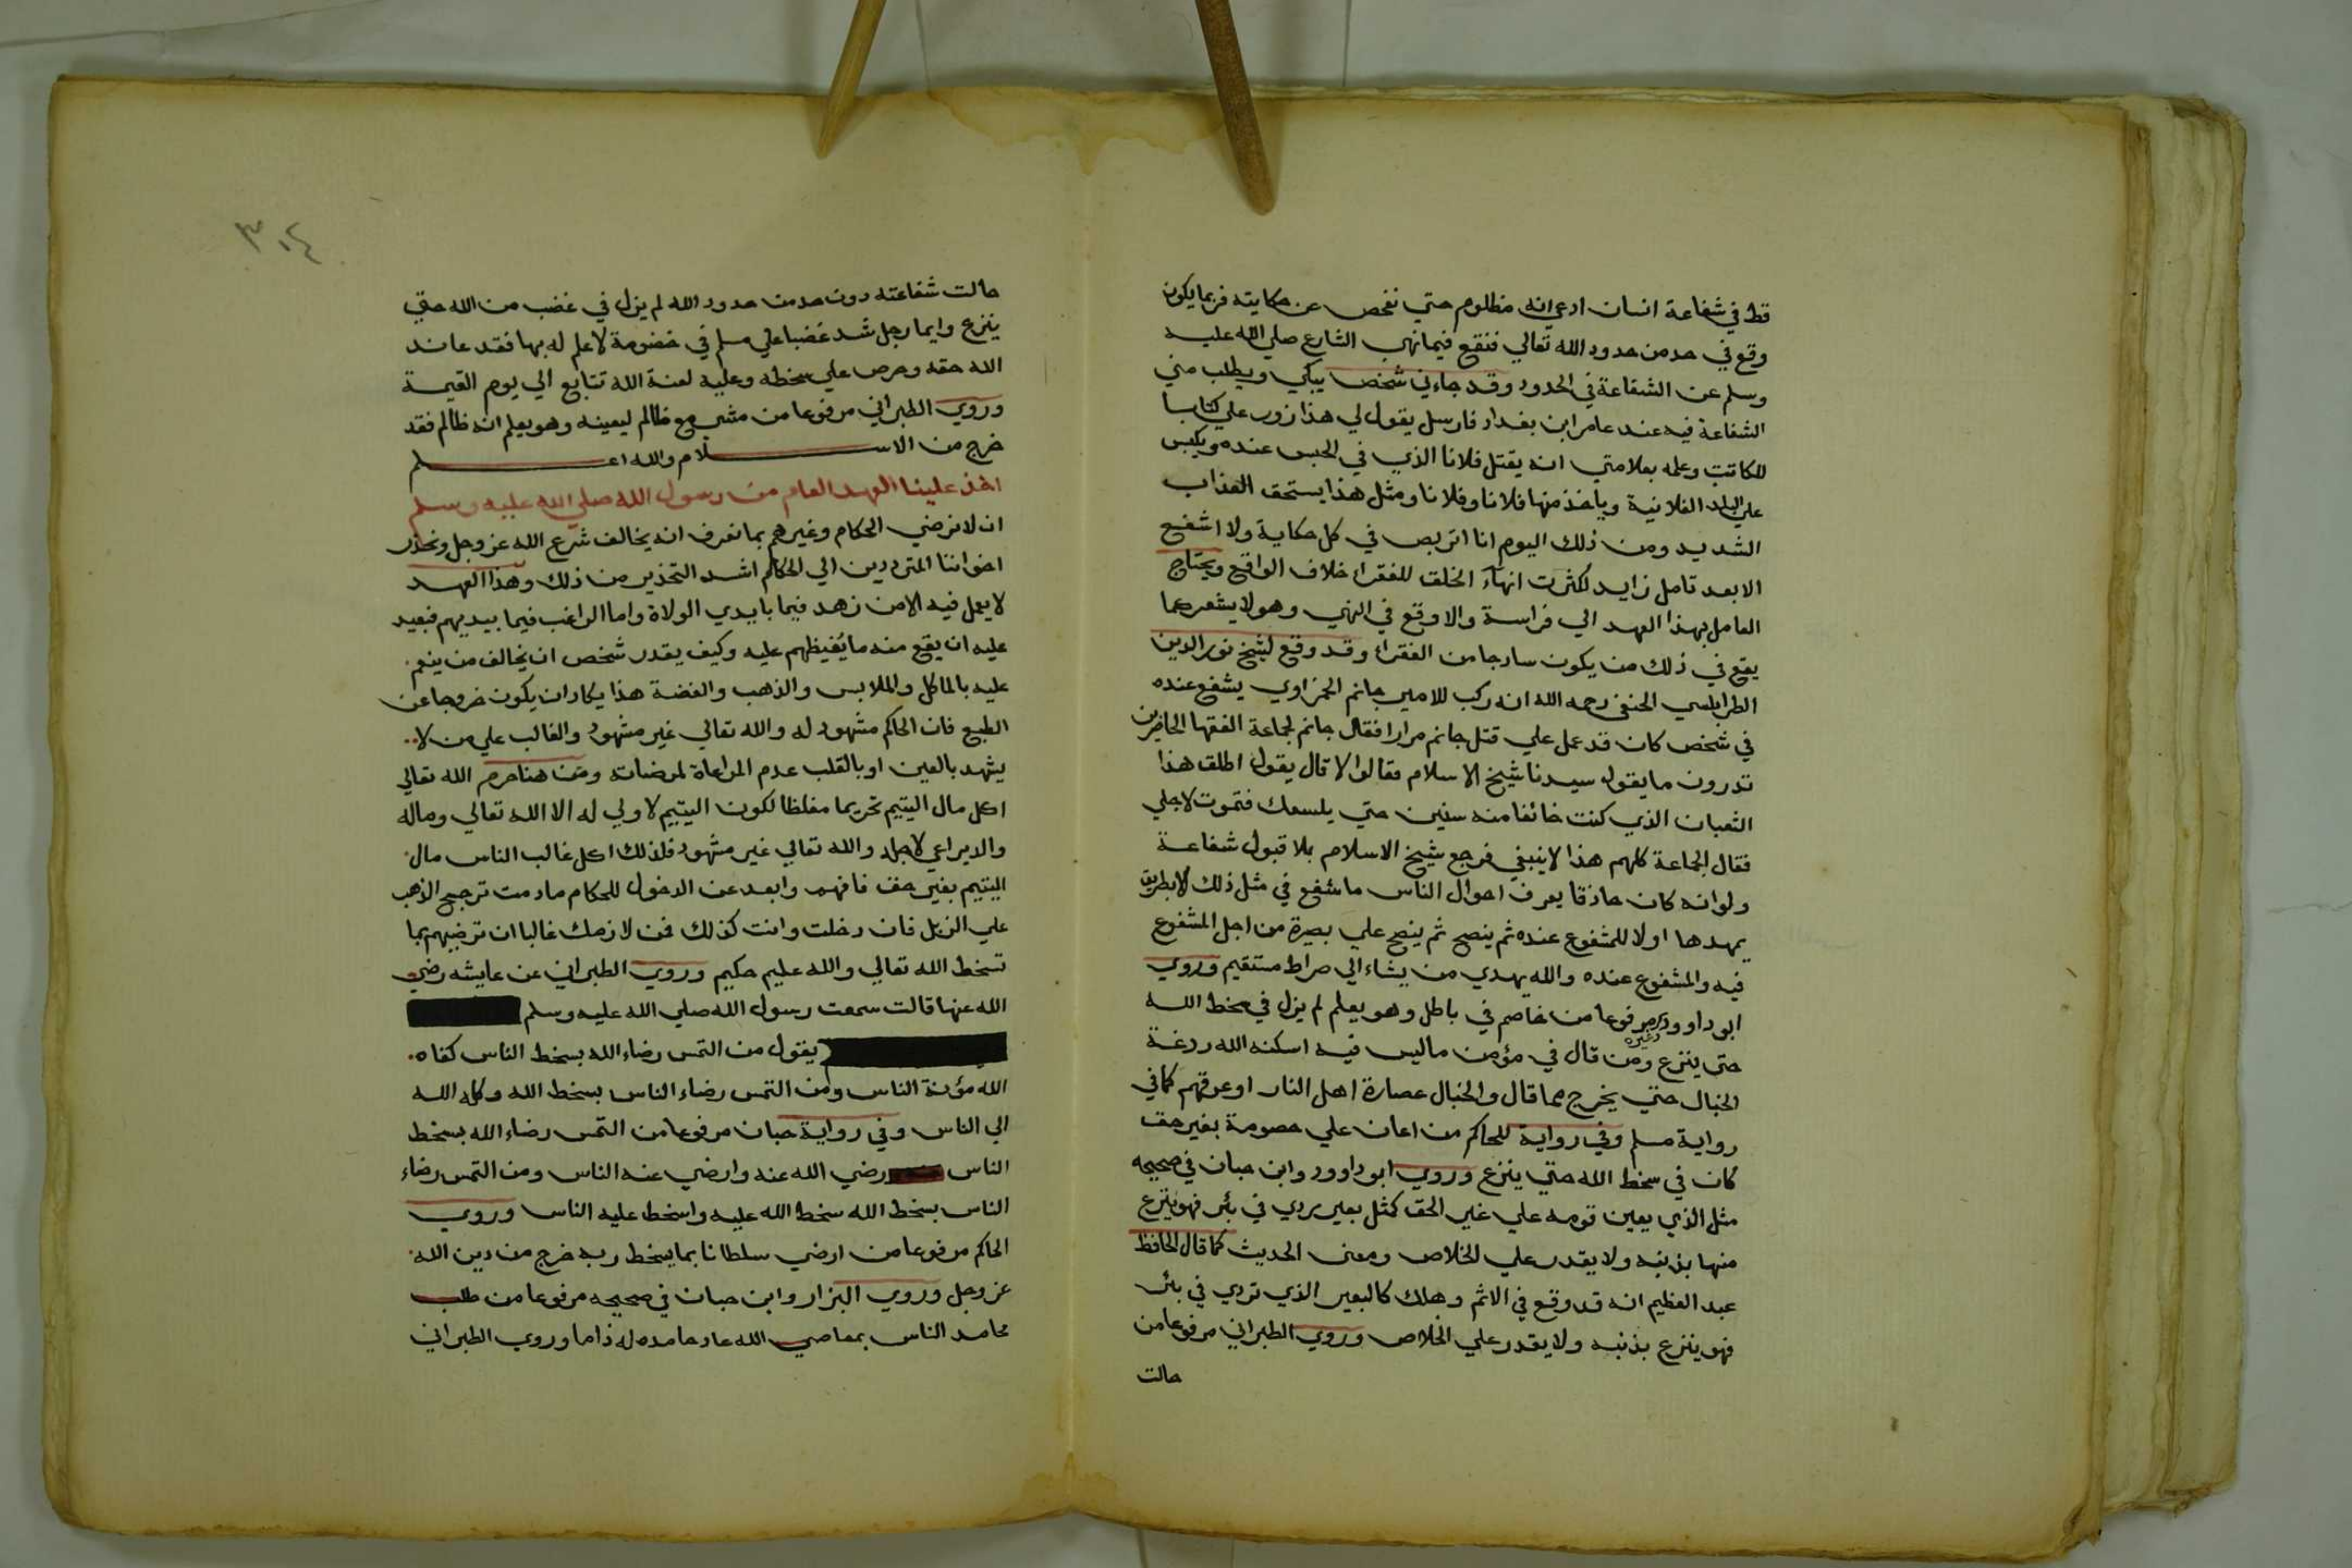 قط في شفاعة انسان ادعي انه مظلوم حتي نفحص عن حكايته فربما يكون
وقع في حد من حدود الله تعالي فنقع فيما نهي الشارع صلي الله عليه
وسلم عن الشفاعة في الحدود وقد جاءني شخص يبكي ويطلب مني
الشفاعة فيه عند عامر ابن بغداد فارسل يقول لي هذا زور علي كتابا
للكاتب وعلمه بعلامتي انه يقتل فلانا الذي في الحبس عنده ويكبس
علي البلد الفلانية وياخذ منها فلانا وفلانا ومثل هذا يستحق العذاب
الشديد ومن ذلك اليوم انا اتربص في كل حكاية ولا اشفع
الا بعد تامل زايد لكثرت انهآء الخلق للفقراء خلاف الواقع ويحتاج
العامل بهذا العهد الي فراسة والا وقع في النهي وهو لا يشعر كما
يقع في ذلك من يكون سادجا من الفقراء وقد وقع لشيخ نور الدين
الطرابلسي الحنفي رحمه الله انه ركب للامير جانم الحمزاوي يشفع عنده
في شخص كان قد عمل علي قتل جانم مرارا فقال جانم لجماعة الفقها الحاضرين
تدرون ما يقول سيدنا شيخ الاسلام فقالوا لا قال يقول اطلق هذا
الثعبان الذي كنت خائفا منه سنين حتي يلسعك فتموت لاجلي
فقال الجماعة كلهم هذا لا ينبغي فرجع شيخ الاسلام بلا قبول شفاعة
ولو انه كان حاذقا يعرف احوال الناس ما شفع في مثل ذلك الا بطريق
يمهدها اولا للمشفوع عنده ثم ينصح ثم ينصح علي بصيرة من اجل المشفوع
فيه والمشفوع عنده والله يهدي من يشاء الي صراط مستقيم وروي
ابو داوود وغيره مرفوعا من خاصم في باطل وهو يعلم لم يزل في سخط الله
حتى ينزع ومن قال في مؤمن ماليس فيه اسكنه الله ردغة
الخبال حتي يخرج مما قال والخبال عصارة اهل النار او عرقهم كما في
رواية مسلم وفي رواية للحاكم من اعان علي خصومة بغير حق
كان في سخط الله حتي ينزع وروي ابو داوود وابن حبان في صحيحه
مثل الذي يعين قومه علي غير الحق كمثل بعير بردي في بئر فهو ينزع
منها بذنبه ولا يقدر علي الخلاص ومعنى الحديث كما قال الحافظ
عبد العظيم انه قد وقع في الاثم وهلك كالبعير الذي تردي في بئر
فهو ينزع بذنبه ولا يقدر علي الخلاص وروي الطبراني مرفوعا من
حالت
٣٠٤
حالت شفاعته دون حد من حدود الله لم يزل في غضب من الله حتي
ينزع وايما رجل شد غضبا علي مسلم في خصومة لا علم له بها فقد عاند
الله حقه وحرص علي سخطه وعليه لعنة الله تتابع الي يوم القيمة
وروي الطبراني مرفوعا من مشي مع ظالم ليعينه وهو يعلم انه ظالم فقد
خرج من الاسلام والله اعلم
اخذ علينا العهد العام من رسول الله صلي الله عليه وسلم
ان لا نرضي الحكام وغيرهم بما نعرف انه يخالف شرع الله عز وجل ونحذر
اخواننا المترددين الي الحكام اشد التحذير من ذلك وهذا العهد
لا يعمل فيه الا من زهد فيما بايدي الولاة واما الراغب فيما بيديهم فبعيد
عليه ان يقع منه ما يُغيظهم عليه وكيف يقدر شخص ان يخالف من ينعم
عليه بالماكل والملابس والذهب والفضة هذا يكاد ان يكون خروجا عن
الطبع فان الحاكم مشهود له والله تعالي غير مشهود والغالب علي من لا
يشهد بالعين او بالقلب عدم المراعاة لمرضات ومن هنا حرم الله تعالي
اكل مال اليتيم تحريما مغلظا لكون اليتيم لا ولي له الا الله تعالي وماله
والد يراعي لاجله والله تعالي غير مشهود فلذلك اكل غالب الناس مال
اليتيم بغير حق فافهم وابعد عن الدخول للحكام مادمت ترجح الذهب
علي الزبل فان دخلت وانت كذلك فمن لازمك غالبا ان ترضيهم بما
تسخط الله تعالي والله عليم حكيم وروي الطبراني عن عايشه رضي
الله عنها قالت سمعت رسول الله صلي الله عليه وسلم
يقول من التمس رضاء الله بسخط الناس كفاه
الله مؤنة الناس ومن التمس رضاء الناس بسخط الله وكله الله
الي الناس وفي رواية حبان مرفوعا من التمس رضاء الله بسخط
الناس رضي الله عنه وارضي عنه الناس ومن التمس رضاء
الناس بسخط الله سخط الله عليه واسخط عليه الناس وروي
الحاكم مرفوعا من ارضي سلطانا بما يسخط ربه خرج من دين الله
عز وجل وروي البزار وابن حبان في صحيحه مرفوعا من طلب
محامد الناس بمعاصي الله عاد حامده له ذاما وروي الطبراني